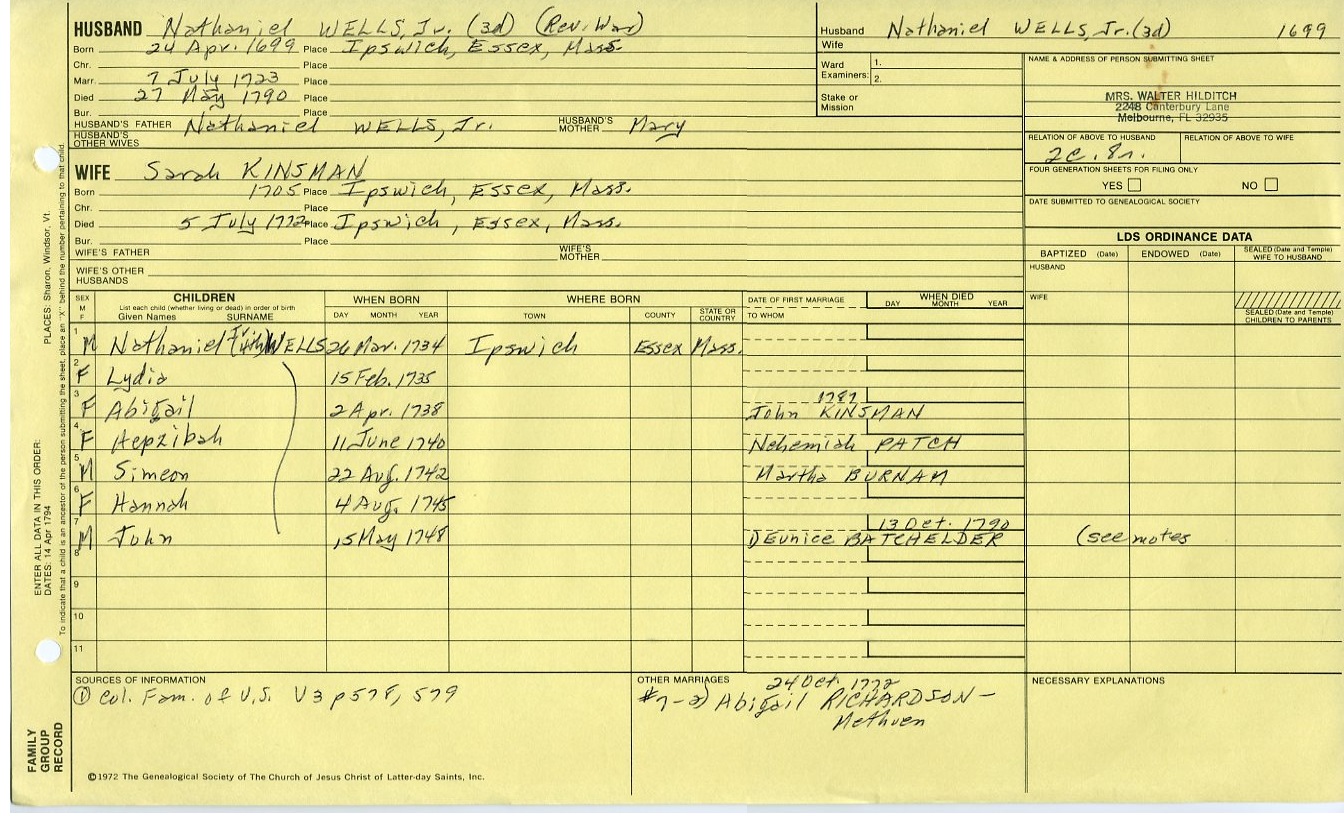 HUSBAND Nathaniel WELLS, Jr. (3d) (Rev. War)
Born 24 Apr. 1699 Place Ipswich, Essex, Mass.
Chr. Place
Marr. 7 July 1723 Place
Died 27 May 1790 Place
Bur. Place
HUSBAND'S FATHER Nathaniel WELLS, Jr. HUSBAND'S MOTHER Mary
HUSBAND'S OTHER WIVES
WIFE Sarah KINSMAN
Born 1705 Place Ipswich, Essex, Mass.
Chr. Place
Died 5 July 1772 Place Ipswich, Essex, Mass.
Bur. Place
WIFE'S FATHER WIFE'S MOTHER
WIFE'S OTHER HUSBANDS
Husband Nathaniel WELLS, Jr. (3d) 1699
Wife
Ward 1.
Examiners: 2.
Stake or Mission
NAME & ADDRESS OF PERSON SUBMITTING SHEET
MRS. WALTER HILDITCH
2248 Canterbury Lane
Melbourne, FL 32935
RELATION OF ABOVE TO HUSBAND RELATION OF ABOVE TO WIFE
2c. 8r.
FOUR GENERATION SHEETS FOR FILING ONLY
YES NO
DATE SUBMITTED TO GENEALOGICAL SOCIETY
LDS ORDINANCE DATA
BAPTIZED (Date) ENDOWED (Date) SEALED (Date and Temple) WIFE TO HUSBAND
HUSBAND
WIFE
SEALED (Date and Temple) CHILDREN TO PARENTS
SEX M F CHILDREN WHEN BORN WHERE BORN DATE OF FIRST MARRIAGE WHEN DIED
List each child (whether living or dead) in order of birth
Given Names SURNAME DAY MONTH YEAR TOWN COUNTY STATE OR COUNTRY TO WHOM DAY MONTH YEAR
1 M Nathaniel WELLS 26 Mar. 1734 Ipswich Essex Mass.
2 F Lydia 15 Feb. 1735
3 F Abigail 2 Apr. 1738 1787 John KINSMAN
4 F Hepzibah 11 June 1740 Nehemiah PATCH
5 M Simeon 22 Aug. 1742 Martha BURNAM
6 F Hannah 4 Aug. 1745
7 M John 15 May 1748 13 Oct. 1790 1) Eunice BATCHELDER (see notes
8
9
10
11
SOURCES OF INFORMATION
① Col. Fam. of U.S. V3 p578, 579
OTHER MARRIAGES
24 Oct. 1772
#7-2) Abigail RICHARDSON –
Methuen
NECESSARY EXPLANATIONS
©1972 The Genealogical Society of The Church of Jesus Christ of Latter-day Saints, Inc.
FAMILY GROUP RECORD
ENTER ALL DATA IN THIS ORDER:
DATES: 14 Apr 1794 PLACES: Sharon, Windsor, Vt.
To indicate that a child is an ancestor of the person submitting the sheet, place an "X" behind the number pertaining to that child.